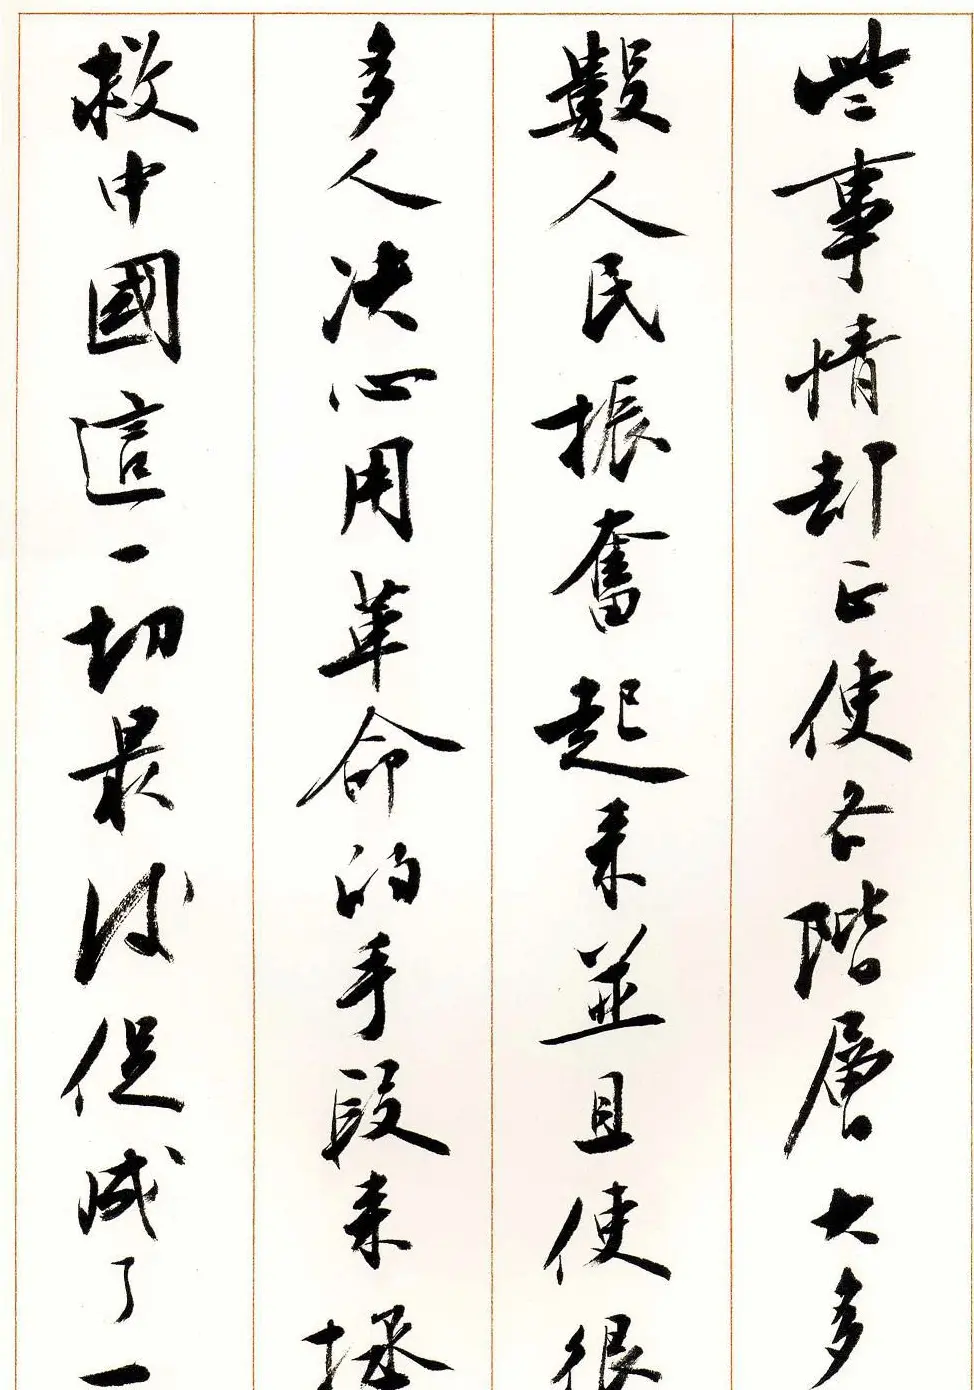 些事情却正使各階層大多
數人民振奮起来並且使很
多人决心用革命的手段来拯
救中國這一切最後促成了一